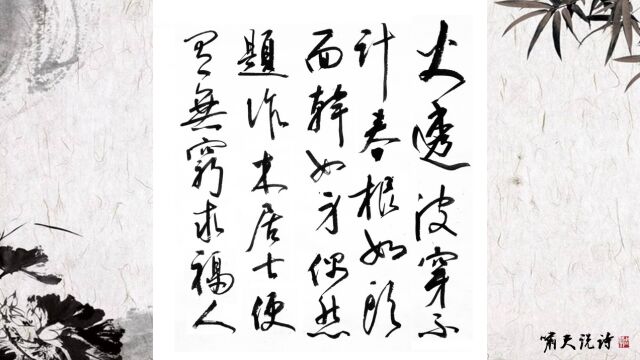 火透波穿不
计春根如头
面幹如身偶然
題作木居士便
有無窮求福人
嘯天说诗